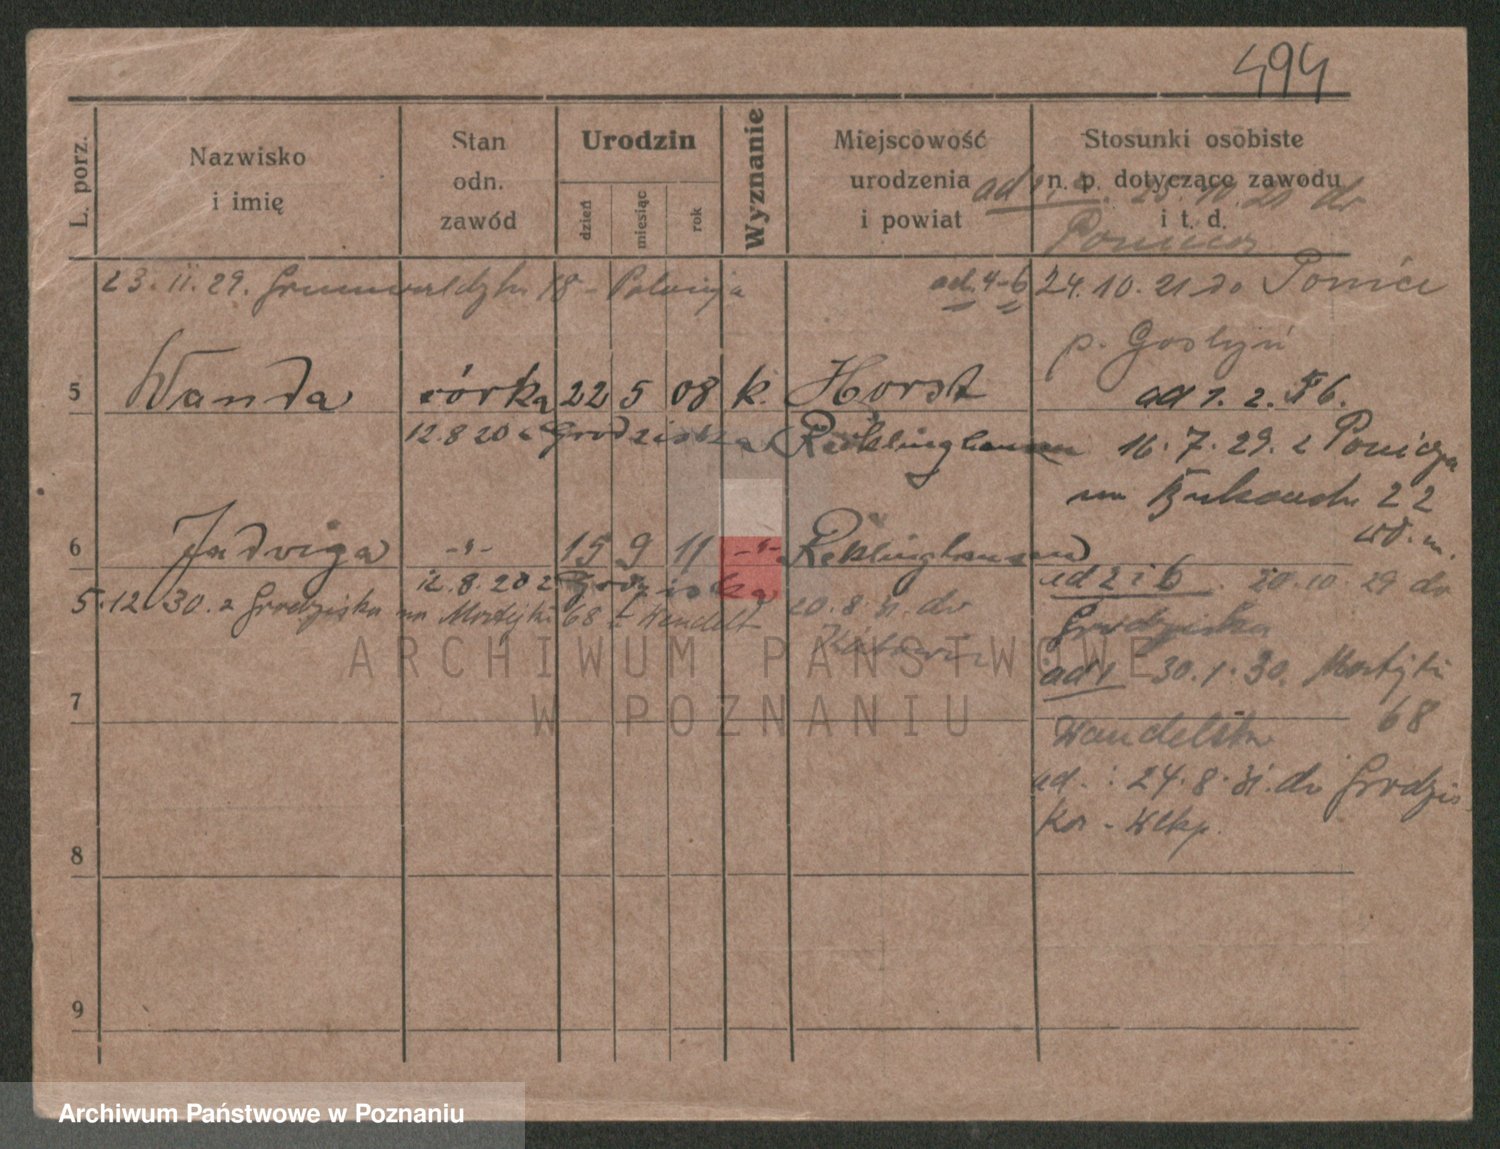 494
L. porz.
Nazwisko
i imię
Stan
odn.
zawód
Urodzin
dzień
miesiąc
rok
Wyznanie
Miejscowość
urodzenia
i powiat
Stosunki osobiste
n. p. dotyczące zawodu
i t. d.
23. 11. 29. Grunwaldzka 18 -
ad. 4-6 24.10.21 do Poniec
p. Gostyń
5 Wanda córka 22 5 08 k. Horst
ad 1. 2. 5 6.
12.8 20 z Grodziska Recklinghausen
16. 7. 29. z Ponieca
22
6 Jadwiga -"- 15 9 11 -"- Recklinghausen
12.8.20 z Grodziska
ad 2 i 6. 20.10.29 do
Grodziska
5.12 30. z Grodziska na 68
20.8.31. do
ad 1 30.1.30.
68
7
ad. : 24.8.31. do Grodzis
ka - Wlkp.
8
9
ARCHIWUM PAŃSTWOWE
W POZNANIU
Archiwum Państwowe w Poznaniu